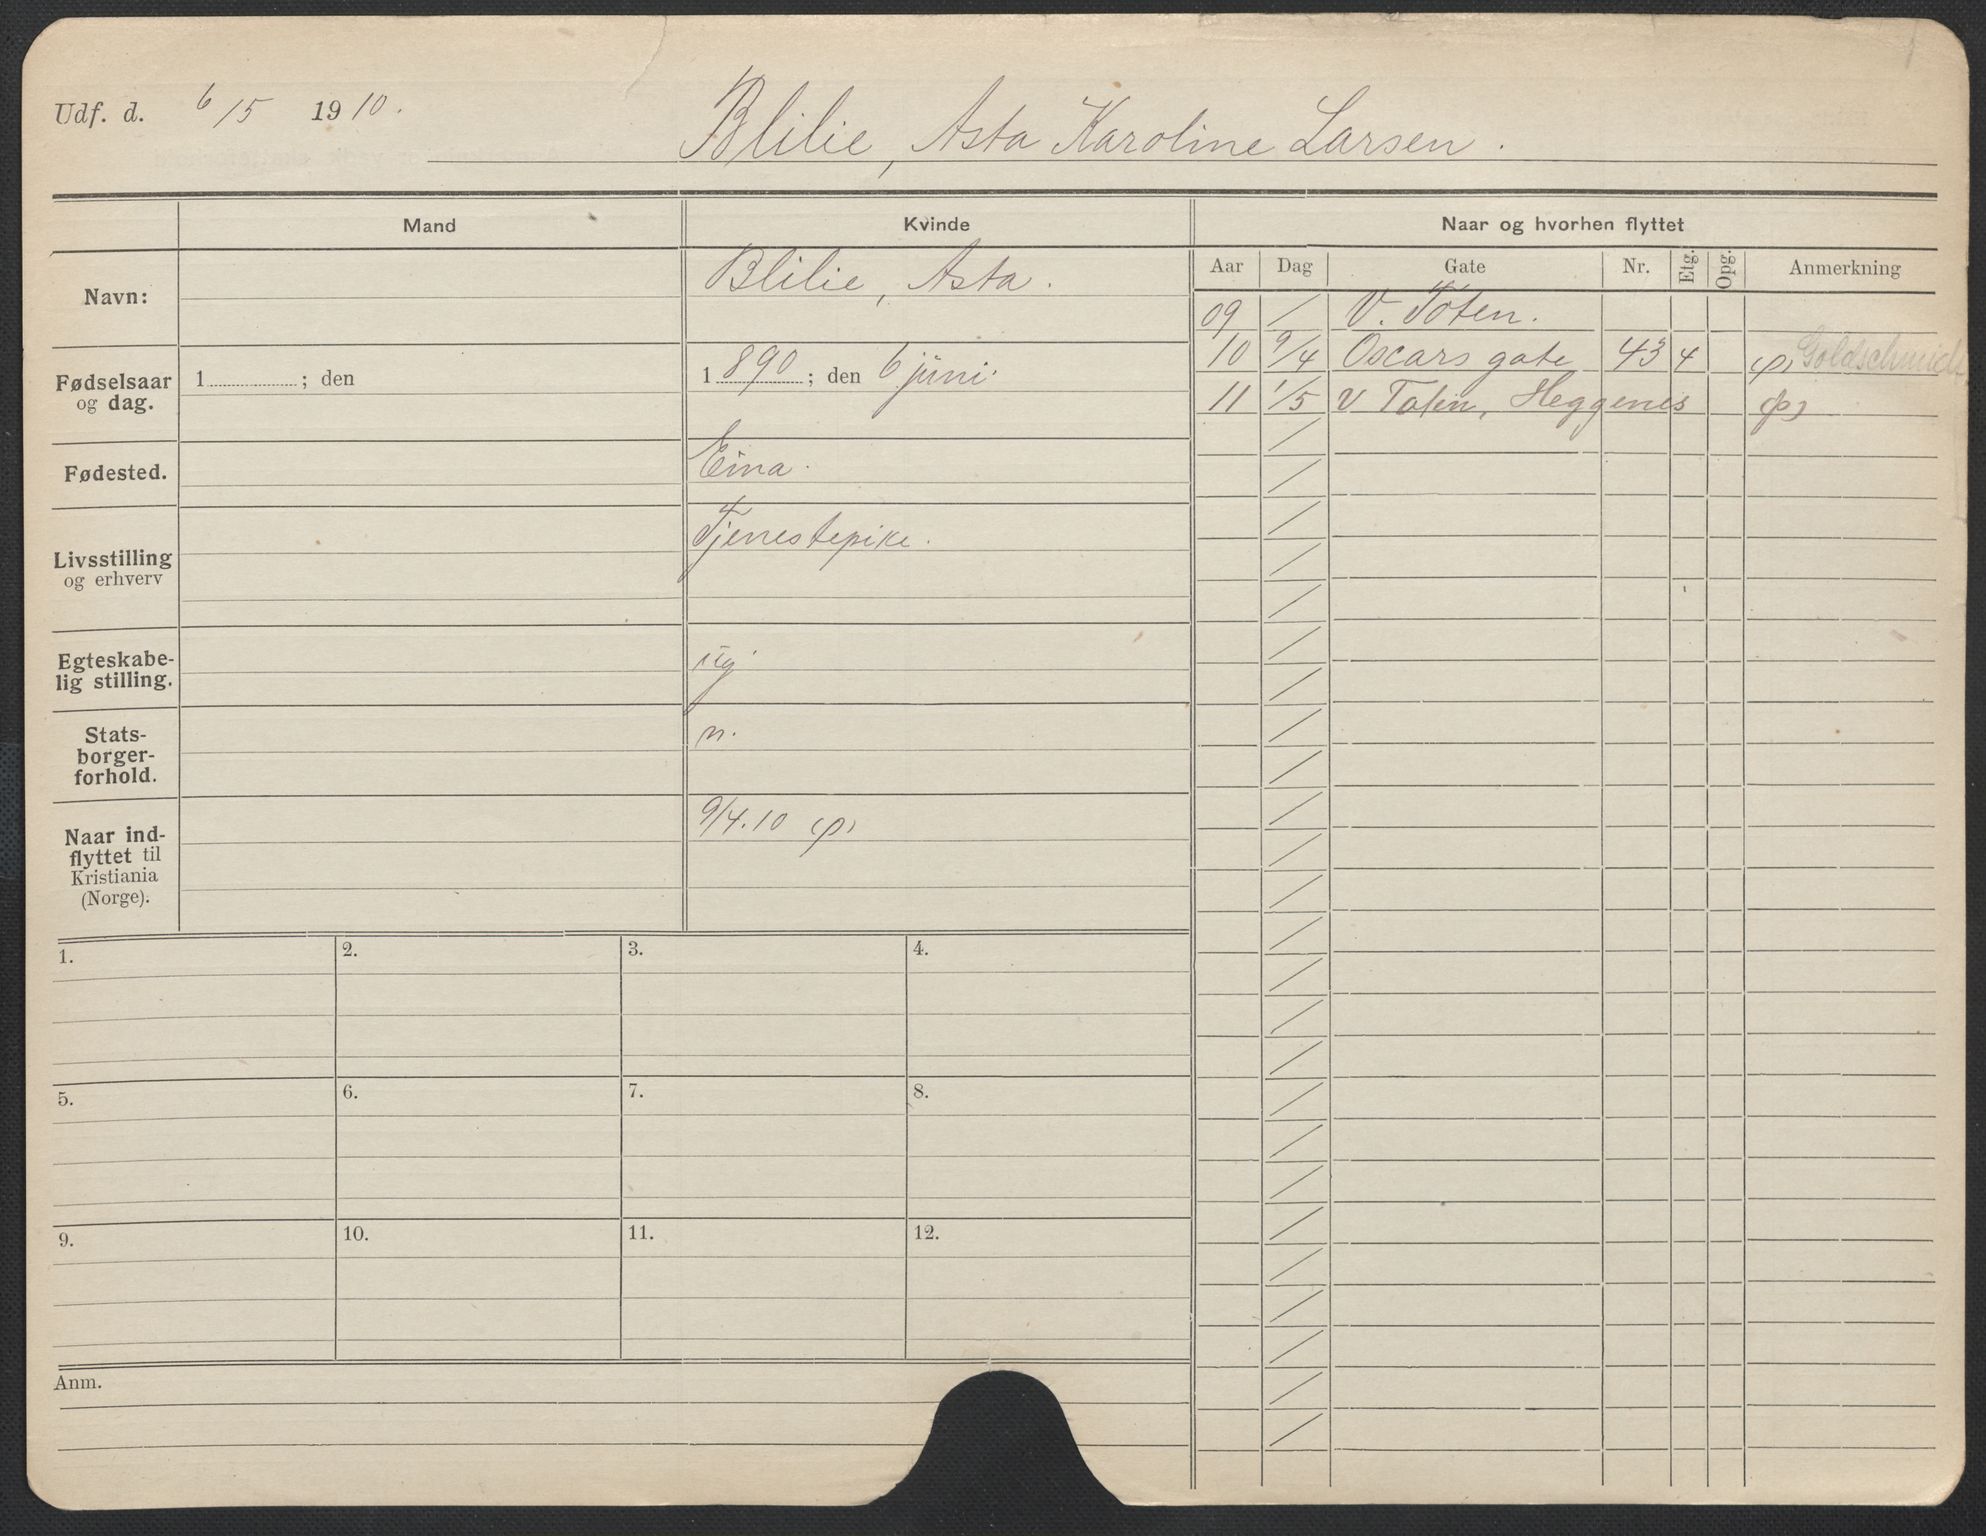 Udf. d. 6/5 1910.
Blilie, Asta Karoline Larsen.
Mand
Kvinde
Naar og hvorhen flyttet
Aar Dag Gate Nr. Etg. Opg. Anmerkning
Navn:
Blilie, Asta.
Fødselsaar
og dag.
1 ; den
1890; den 6 juni.
Fødested.
Eina.
Livsstilling
og erhverv
Tjenestepike.
Egteskabe-
lig stilling.
ug.
Stats-
borger-
forhold.
n.
Naar ind-
flyttet til
Kristiania
(Norge).
9/4.10 (p)
09 / V. Toten.
10 9/4 Oscars gate 43 4 (p) Goldschmidt
11 1/5 V Toten, Heggenes (p)
1.
2.
3.
4.
5.
6.
7.
8.
9.
10.
11.
12.
Anm.